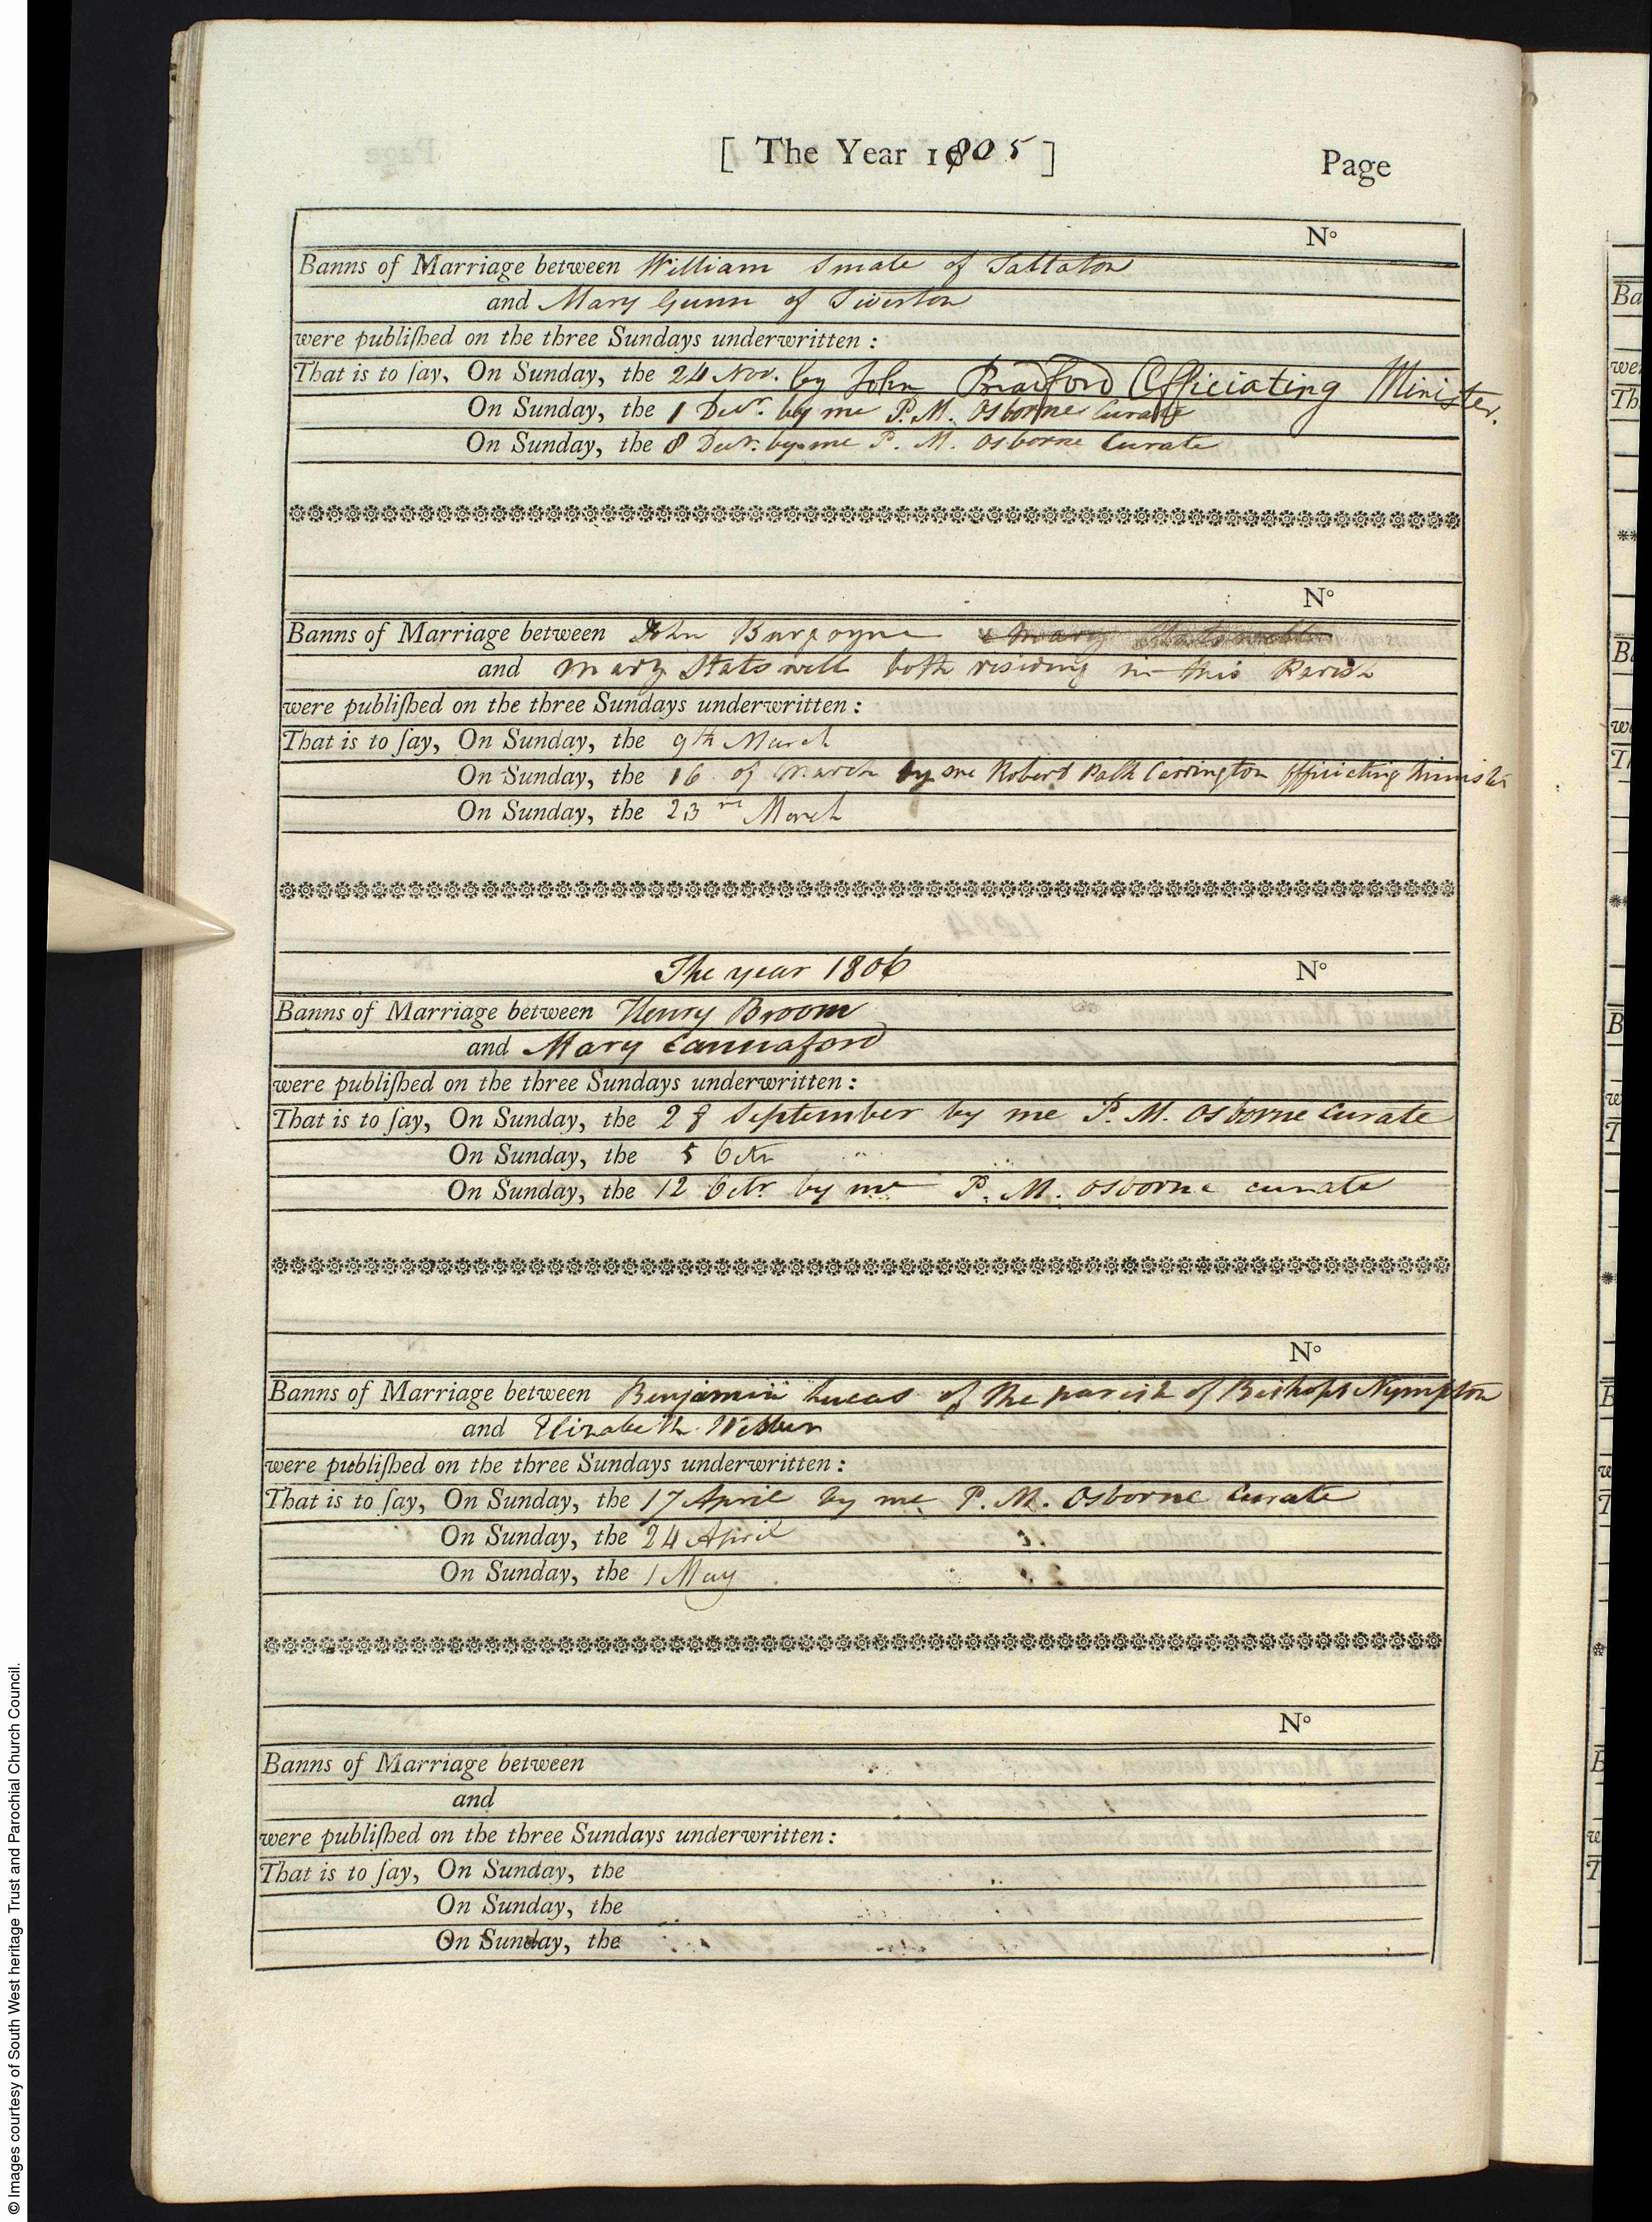 [ The Year 1805 ] Page
No
Banns of Marriage between William Smale of Sattaton
and Mary Gunn of Tiverton
were publiſhed on the three Sundays underwritten :
That is to ſay, On Sunday, the 24 Nov. by John Bradford Officiating Minister.
On Sunday, the 1 Decr. by me P. M. Osborne Curate
On Sunday, the 8 Decr. by me P. M. Osborne Curate
No
Banns of Marriage between John Burgoyne & Mary
and Mary Statswell both residing in this Parish
were publiſhed on the three Sundays underwritten :
That is to ſay, On Sunday, the 9th March
On Sunday, the 16 of March by me Robert Palk Carrington Officiating Minister
On Sunday, the 23rd March
The year 1806 No
Banns of Marriage between Henry Broom
and Mary Cannaford
were publiſhed on the three Sundays underwritten :
That is to ſay, On Sunday, the 28 September by me P. M. Osborne Curate
On Sunday, the 5 Octr
On Sunday, the 12 Octr. by me P. M. Osborne curate
No
Banns of Marriage between Benjamin Lucas of the parish of Bishops Nympton
and Elizabeth Webber
were publiſhed on the three Sundays underwritten :
That is to ſay, On Sunday, the 17 April by me P. M. Osborne Curate
On Sunday, the 24 April
On Sunday, the 1 May
No
Banns of Marriage between
and
were publiſhed on the three Sundays underwritten :
That is to ſay, On Sunday, the
On Sunday, the
On Sunday, the
© Images courtesy of South West heritage Trust and Parochial Church Council.